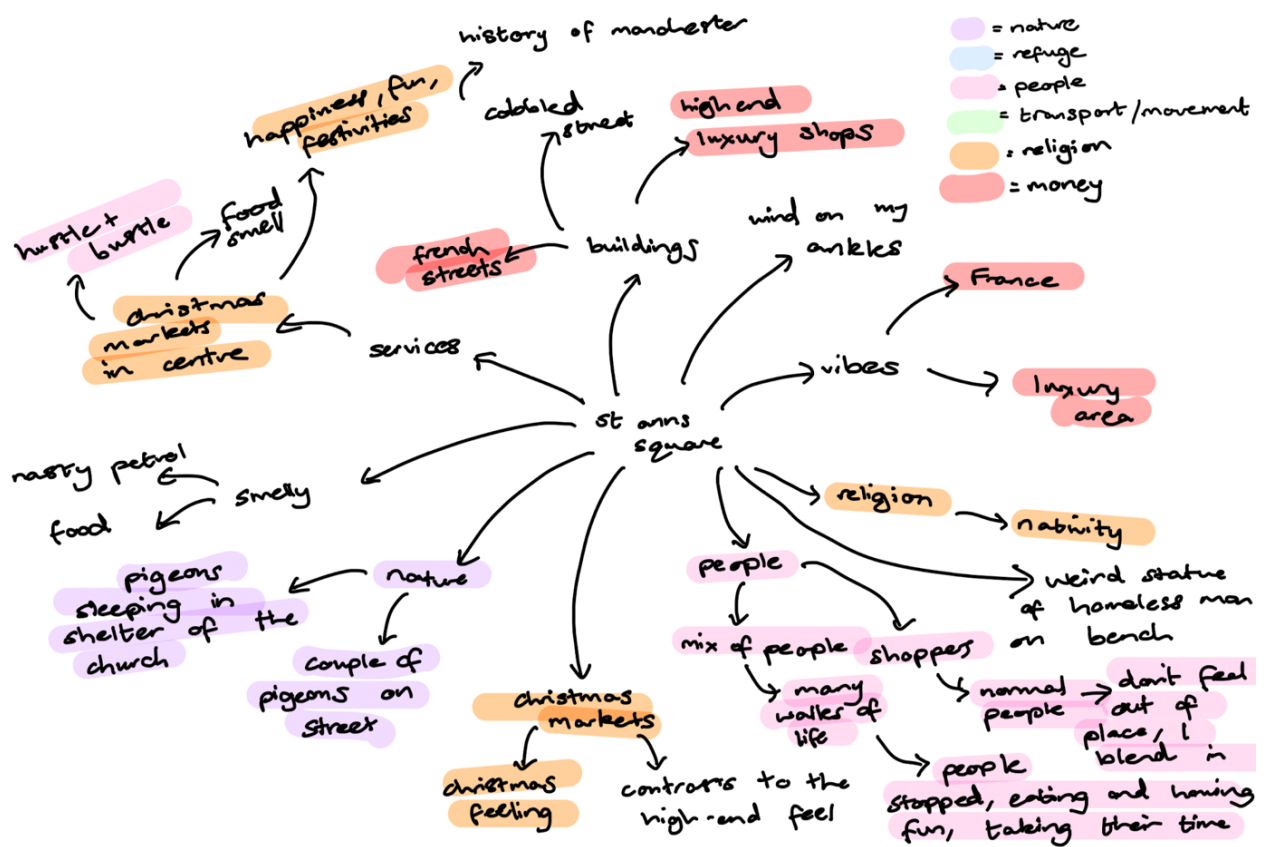 history of manchester
= nature
= refuge
= people
= transport/movement
= religion
= money
happiness, fun,
festivities
cobbled
street
high end
luxury shops
hustle +
bustle
food
smell
french
streets
buildings
wind on my
ankles
France
christmas
markets
in centre
services
vibes
luxury
area
st anns
square
nasty petrol
smelly
food
religion
nativity
pigeons
sleeping in
shelter of the
church
nature
people
weird statue
of homeless man
on bench
couple of
pigeons on
street
mix of people
shoppers
many
walks of
life
normal
people
don't feel
out of
place, I
blend in
christmas
markets
christmas
feeling
contrasts to the
high-end feel
people
stopped, eating and having
fun, taking their time